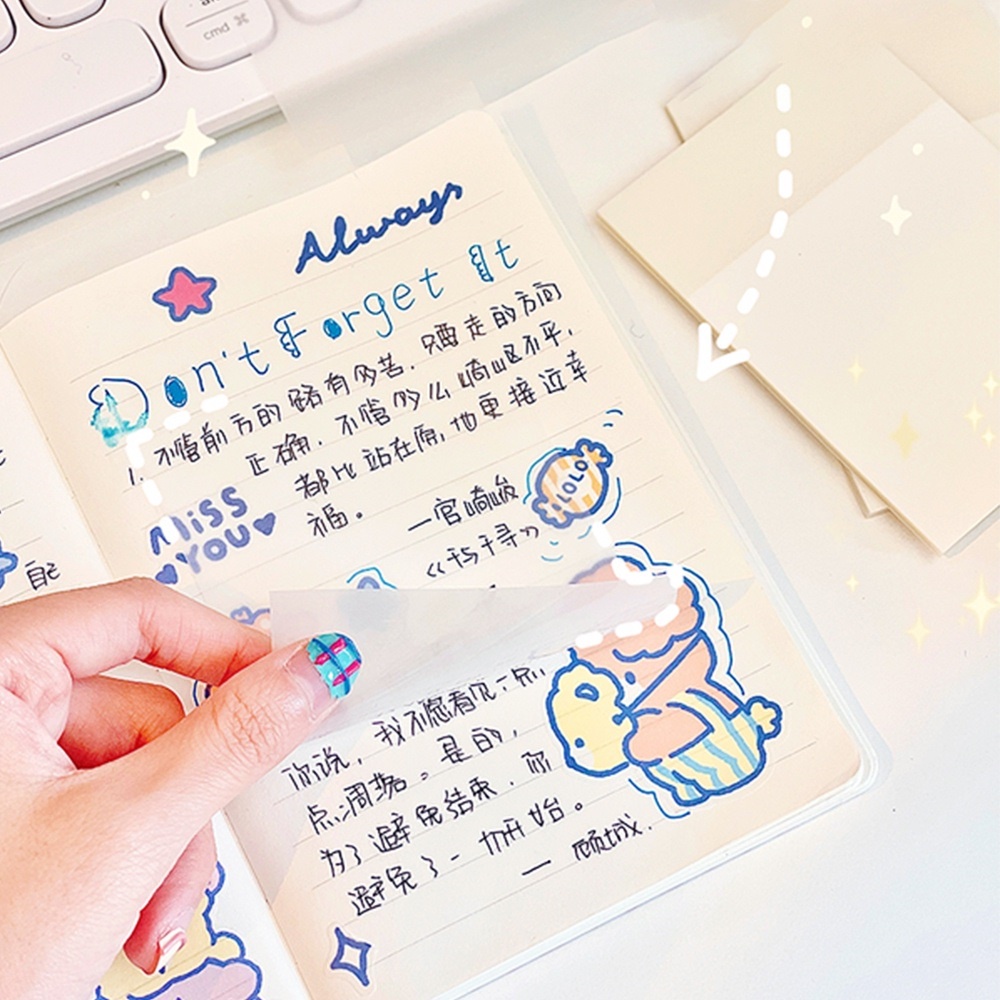 cmd ⌘
Always
Don't Forget It
1. 不管前方的路有多苦,只要走的方向
正确,不管多么崎岖不平,
都比站在原地更接近幸
福。
Miss
YOU
LOLO
—宫崎骏
《千与千寻》
自己
你说,我不愿看见一点
点凋零。是的,
为了避免结束,你
避免了一切开始。
— 顾城